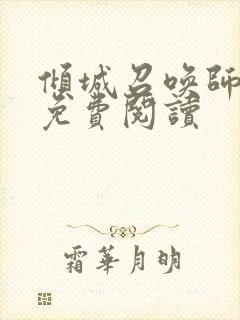 傾城召喚師
免費閱讀
霜華月明